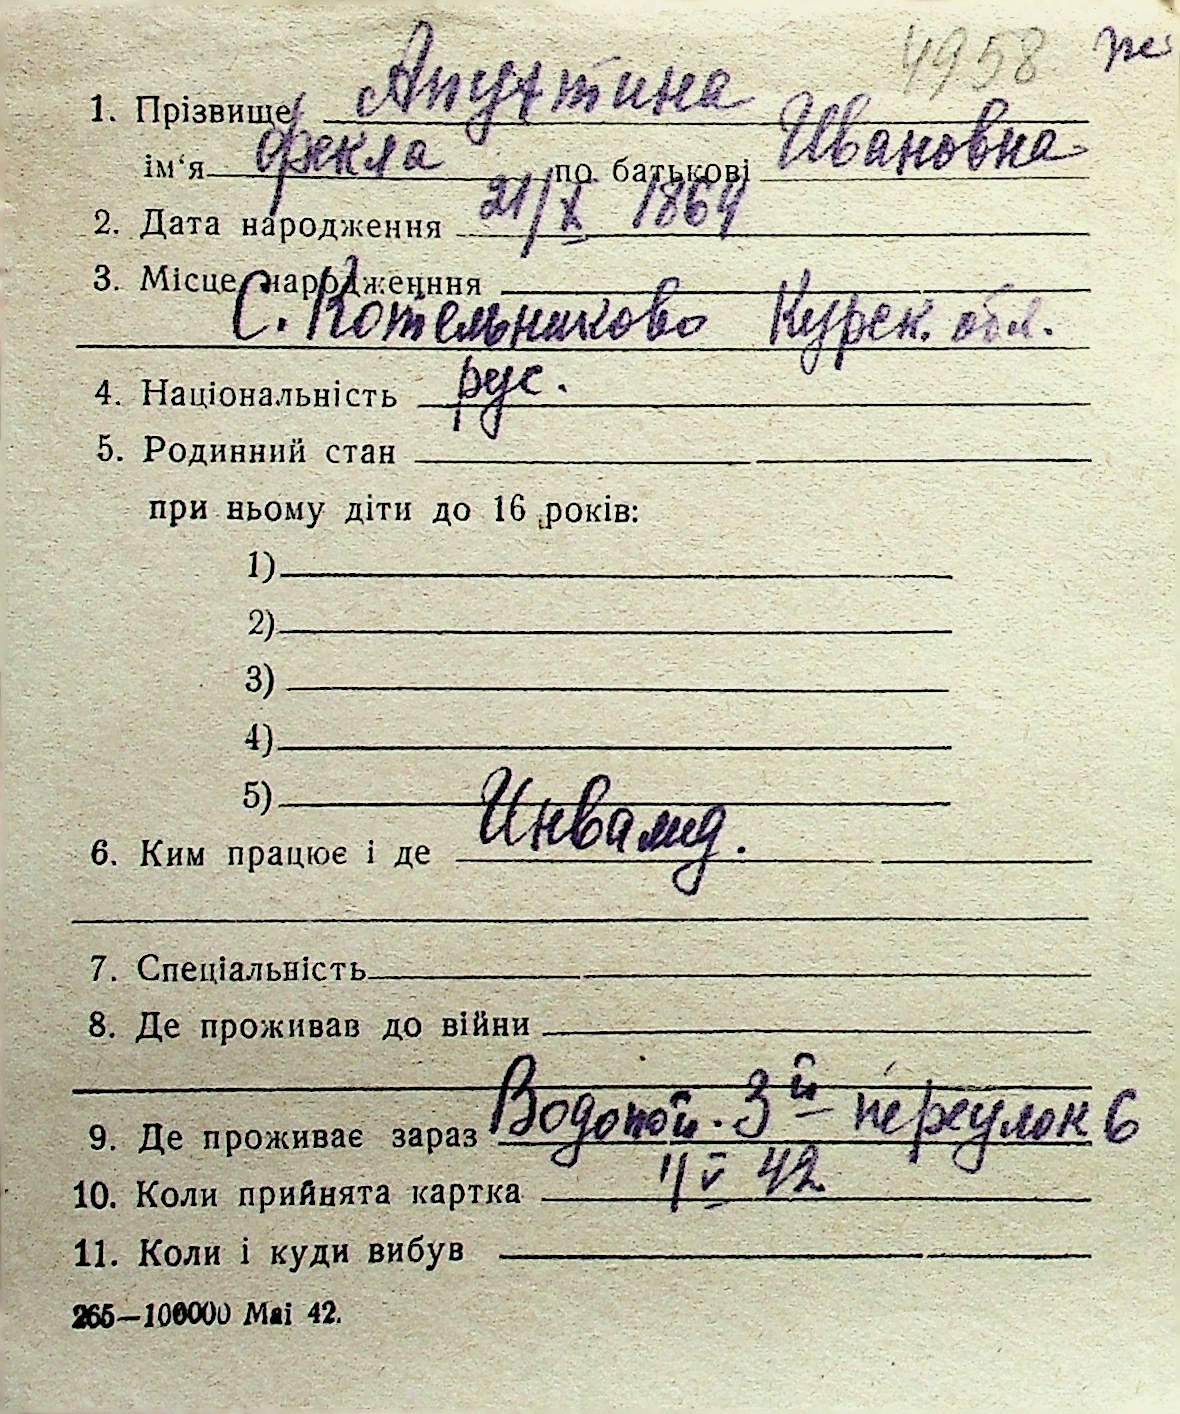 4958 же
1. Прізвище Апухтина
ім‘я Фекла по батькові Ивановна
2. Дата народження 21/X 1864
3. Місце народженння
С. Котельниково Курск. обл.
4. Національність рус.
5. Родинний стан
при ньому діти до 16 років:
1)
2)
3)
4)
5)
6. Ким працює і де Инвалид.
7. Спеціальність
8. Де проживав до війни
9. Де проживає зараз Водопой. 3й переулок 6
10. Коли прийнята картка 4/V 42
11. Коли і куди вибув
265—100000 Mai 42.